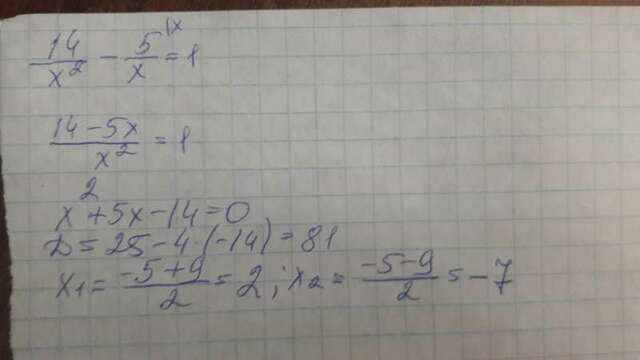 14/x² - 5/x |x = 1
(14 - 5x)/x² = 1
x² + 5x - 14 = 0
D = 25 - 4·(-14) = 81
x₁ = (-5+9)/2 = 2; x₂ = (-5-9)/2 = -7